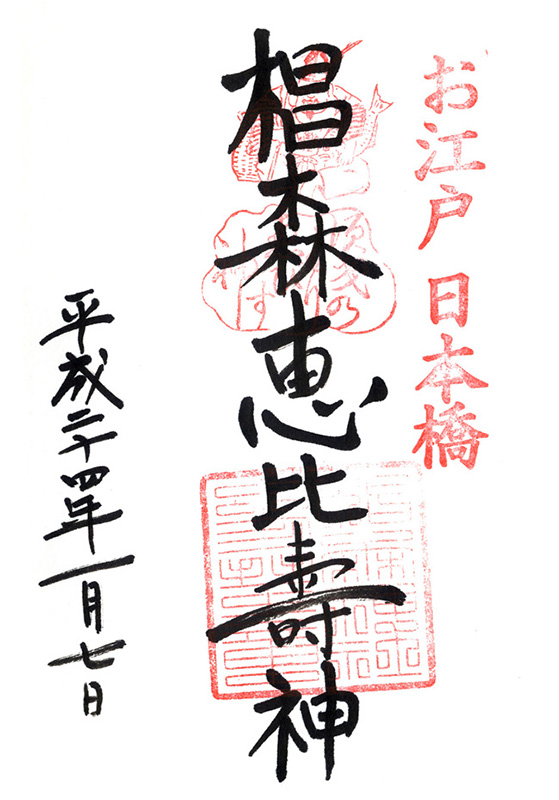 お江戸 日本橋
椙森恵比寿神
平成二十四年一月七日